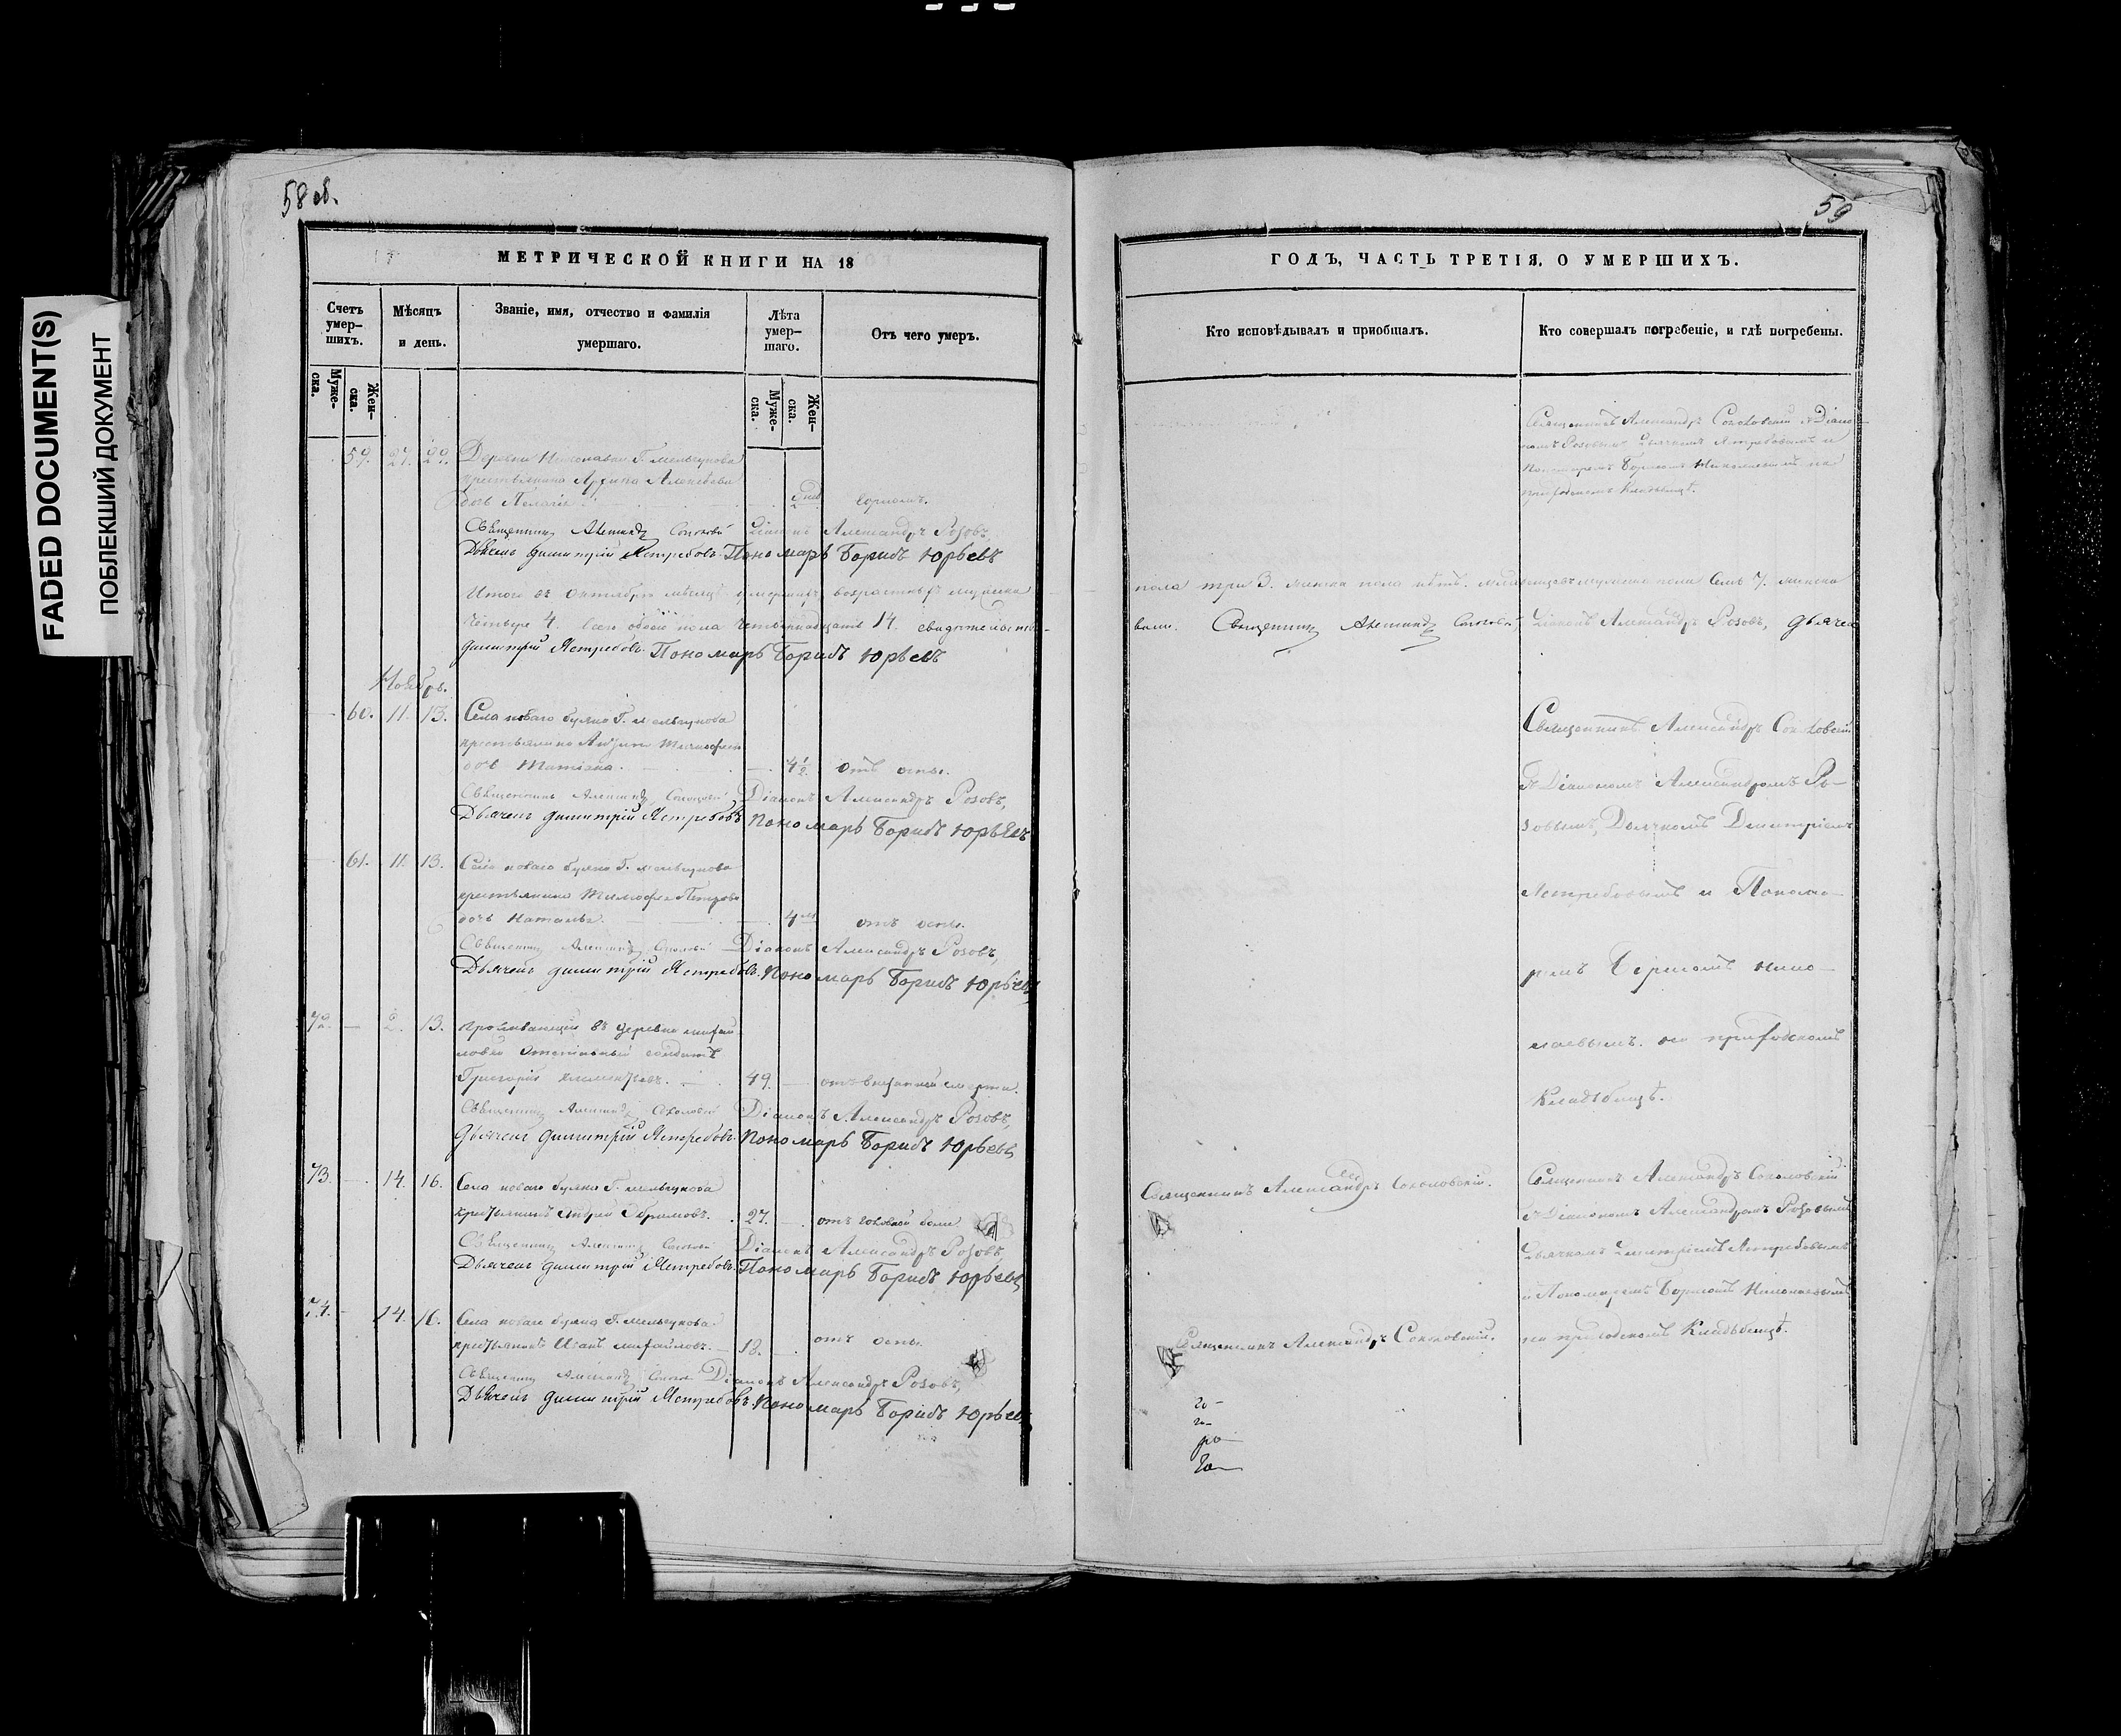 58 об.
59
FADED DOCUMENT(S)
ПОБЛЕКШИЙ ДОКУМЕНТ
МЕТРИЧЕСКОЙ КНИГИ НА 18
Счетъ умер-
шихъ.
Мѣсяцъ
и день.
Званіе, имя, отчество и фамилія
умершаго.
Лѣта
умер-
шаго.
Отъ чего умеръ.
Муже-
ска.
Жен-
ска.
Муже-
ска.
Жен-
ска.
59. 27. 29. Деревни Г. Мельгунова
крестьянина
дочь Пелагія
Священникъ Александръ Соколовскій Діаконъ Александръ Розовъ,
Дьячекъ Димитрій Ястребовъ. Пономарь Борисъ Юрьевъ
Итого въ Октябрѣ мѣсяцѣ умершихъ возрастныхъ мужеска
четыре 4. всего обоего пола четырнадцать 14. свидѣтельство-
Димитрій Ястребовъ. Пономарь Борисъ Юрьевъ
Ноябрь.
60. 11. 13. Села новаго буяна Г. Мельгунова
крестьянина
дочь Татіяна. 4½ отъ оспы.
Священникъ Александръ Соколовскій Діаконъ Александръ Розовъ,
Дьячекъ Димитрій Ястребовъ Пономарь Борисъ Юрьевъ
61. 11. 13. Села новаго буяна Г. Мельгунова
крестьянина Тимофея Петрова
дочь Наталья. 4 м отъ оспы.
Священникъ Александръ Соколовскій Діаконъ Александръ Розовъ,
Дьячекъ Димитрій Ястребовъ. Пономарь Борисъ Юрьевъ
72. — 13. проживающій въ деревнѣ михай-
ловки отставный солдатъ
Григорій Климентьевъ. 49. — отъ внезапной смерти.
Священникъ Александръ Соколовскій Діаконъ Александръ Розовъ,
Дьячекъ Димитрій Ястребовъ. Пономарь Борисъ Юрьевъ
73. — 14. 16. Села новаго буяна Г. Мельгунова
крестьянинъ Андрей Ефимовъ. 27. — отъ головной боли
Священникъ Александръ Соколовскій Діаконъ Александръ Розовъ,
Дьячекъ Димитрій Ястребовъ. Пономарь Борисъ Юрьевъ
74. — 14. 16. Села новаго буяна Г. Мельгунова
крестьянинъ Иванъ Михайловъ. — 18. отъ оспы.
Священникъ Александръ Діаконъ Александръ Розовъ,
Дьячекъ Димитрій Ястребовъ. Пономарь Борисъ Юрьевъ
ГОДЪ, ЧАСТЬ ТРЕТІЯ, О УМЕРШИХЪ.
Кто исповѣдывалъ и пріобщалъ.
Кто совершалъ погребеніе, и гдѣ погребены.
Священникъ Александръ Соколовскій съ Діако-
номъ Розовымъ Дьячкомъ Ястребовымъ и
Пономаремъ Борисомъ Николаевымъ на
приходскомъ кладбищѣ.
пола три 3. женска пола нѣтъ. младенцевъ мужеска пола семь 7. женска
вали. Священникъ Александръ Соколовскій, Діаконъ Александръ Розовъ, Дьячекъ
Священникъ Александръ Соколовскій
съ Діакономъ Александромъ Ро-
зовымъ, Дьячкомъ Димитріемъ
Ястребовымъ и Понома-
ремъ Борисомъ Нико-
лаевымъ. на приходскомъ
Кладбищѣ.
Священникъ Александръ Соколовскій.
Священникъ Александръ Соколовскій
съ Діакономъ Александромъ Розовымъ
Дьячкомъ Димитріемъ Ястребовымъ
и Пономаремъ Борисомъ Николаевымъ
Священникъ Александръ Соколовскій.
на приходскомъ Кладбищѣ.